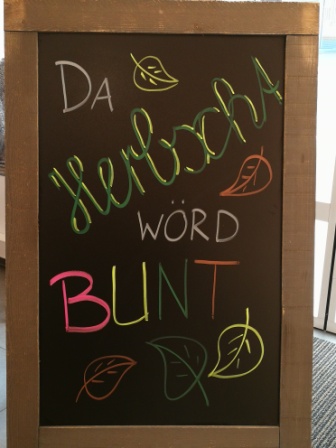 DA
Herbscht
WÖRD
BUNT